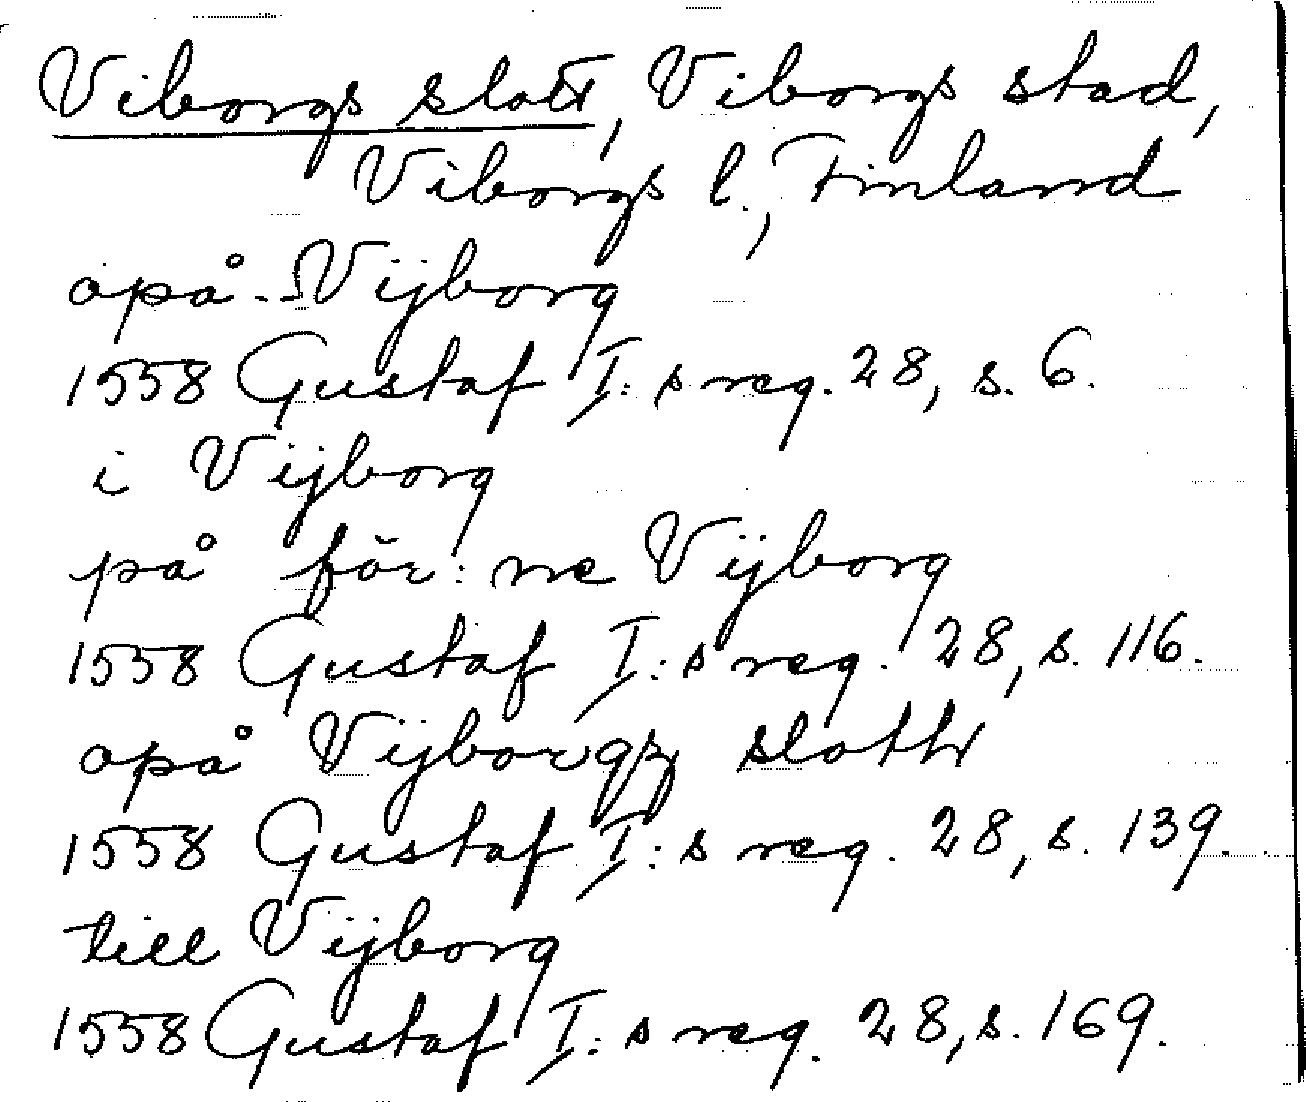 Viborgs slott, Viborgs stad,
Viborgs l., Finland
opå - Vijborg
1558 Gustaf I:s reg. 28, s. 6.
i Vijborg
på för:ne Vijborg
1558 Gustaf I:s reg. 28, s. 116.
opå Vijborgz slothr
1558 Gustaf I:s reg. 28, s. 139.
till Vijborg
1558 Gustaf I:s reg. 28, s. 169.